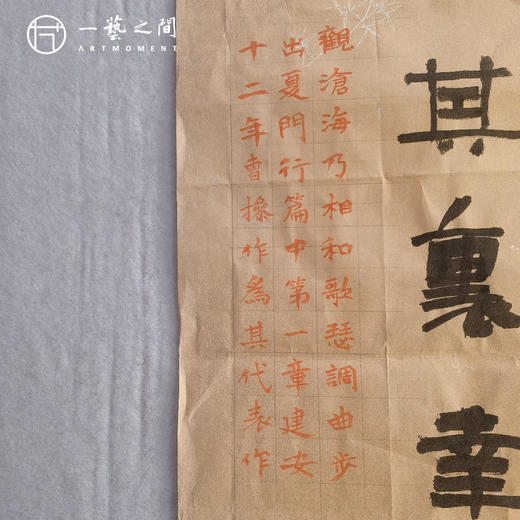 一藝之間
ARTMOMENT
其裏幸
觀滄海乃相和歌瑟調曲步
出夏門行篇中第一章建安
十二年曹操作為其代表作